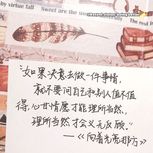 by virtue fall
Sweet are the
“如果决意去做一件事情，
就不要问自己和别人值不值
得，心甘情愿才能理所当然，
理所当然才会义无反顾。”
—《向着光亮那方》